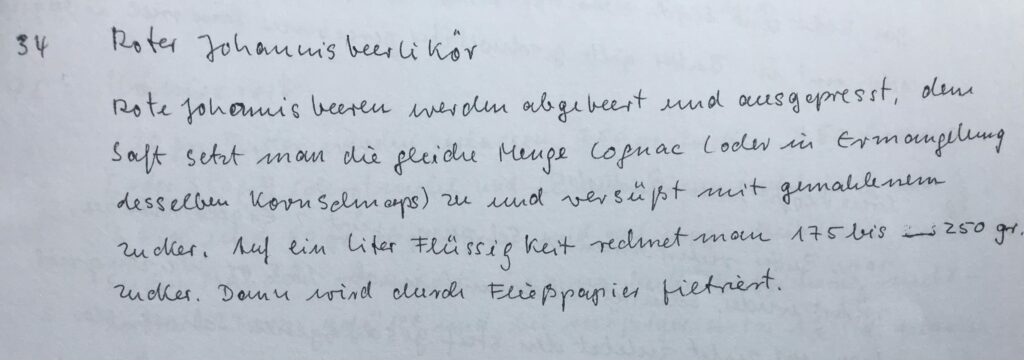 34 Roter Johannisbeerlikör
Rote Johannisbeeren werden abgebeert und ausgepresst, dem
Saft setzt man die gleiche Menge Cognac (oder in Ermangelung
desselben Kornschnaps) zu und versüßt mit gemahlenem
Zucker. Auf ein Liter Flüssigkeit rechnet man 175 bis 250 gr.
Zucker. Dann wird durch Fließpapier filtriert.